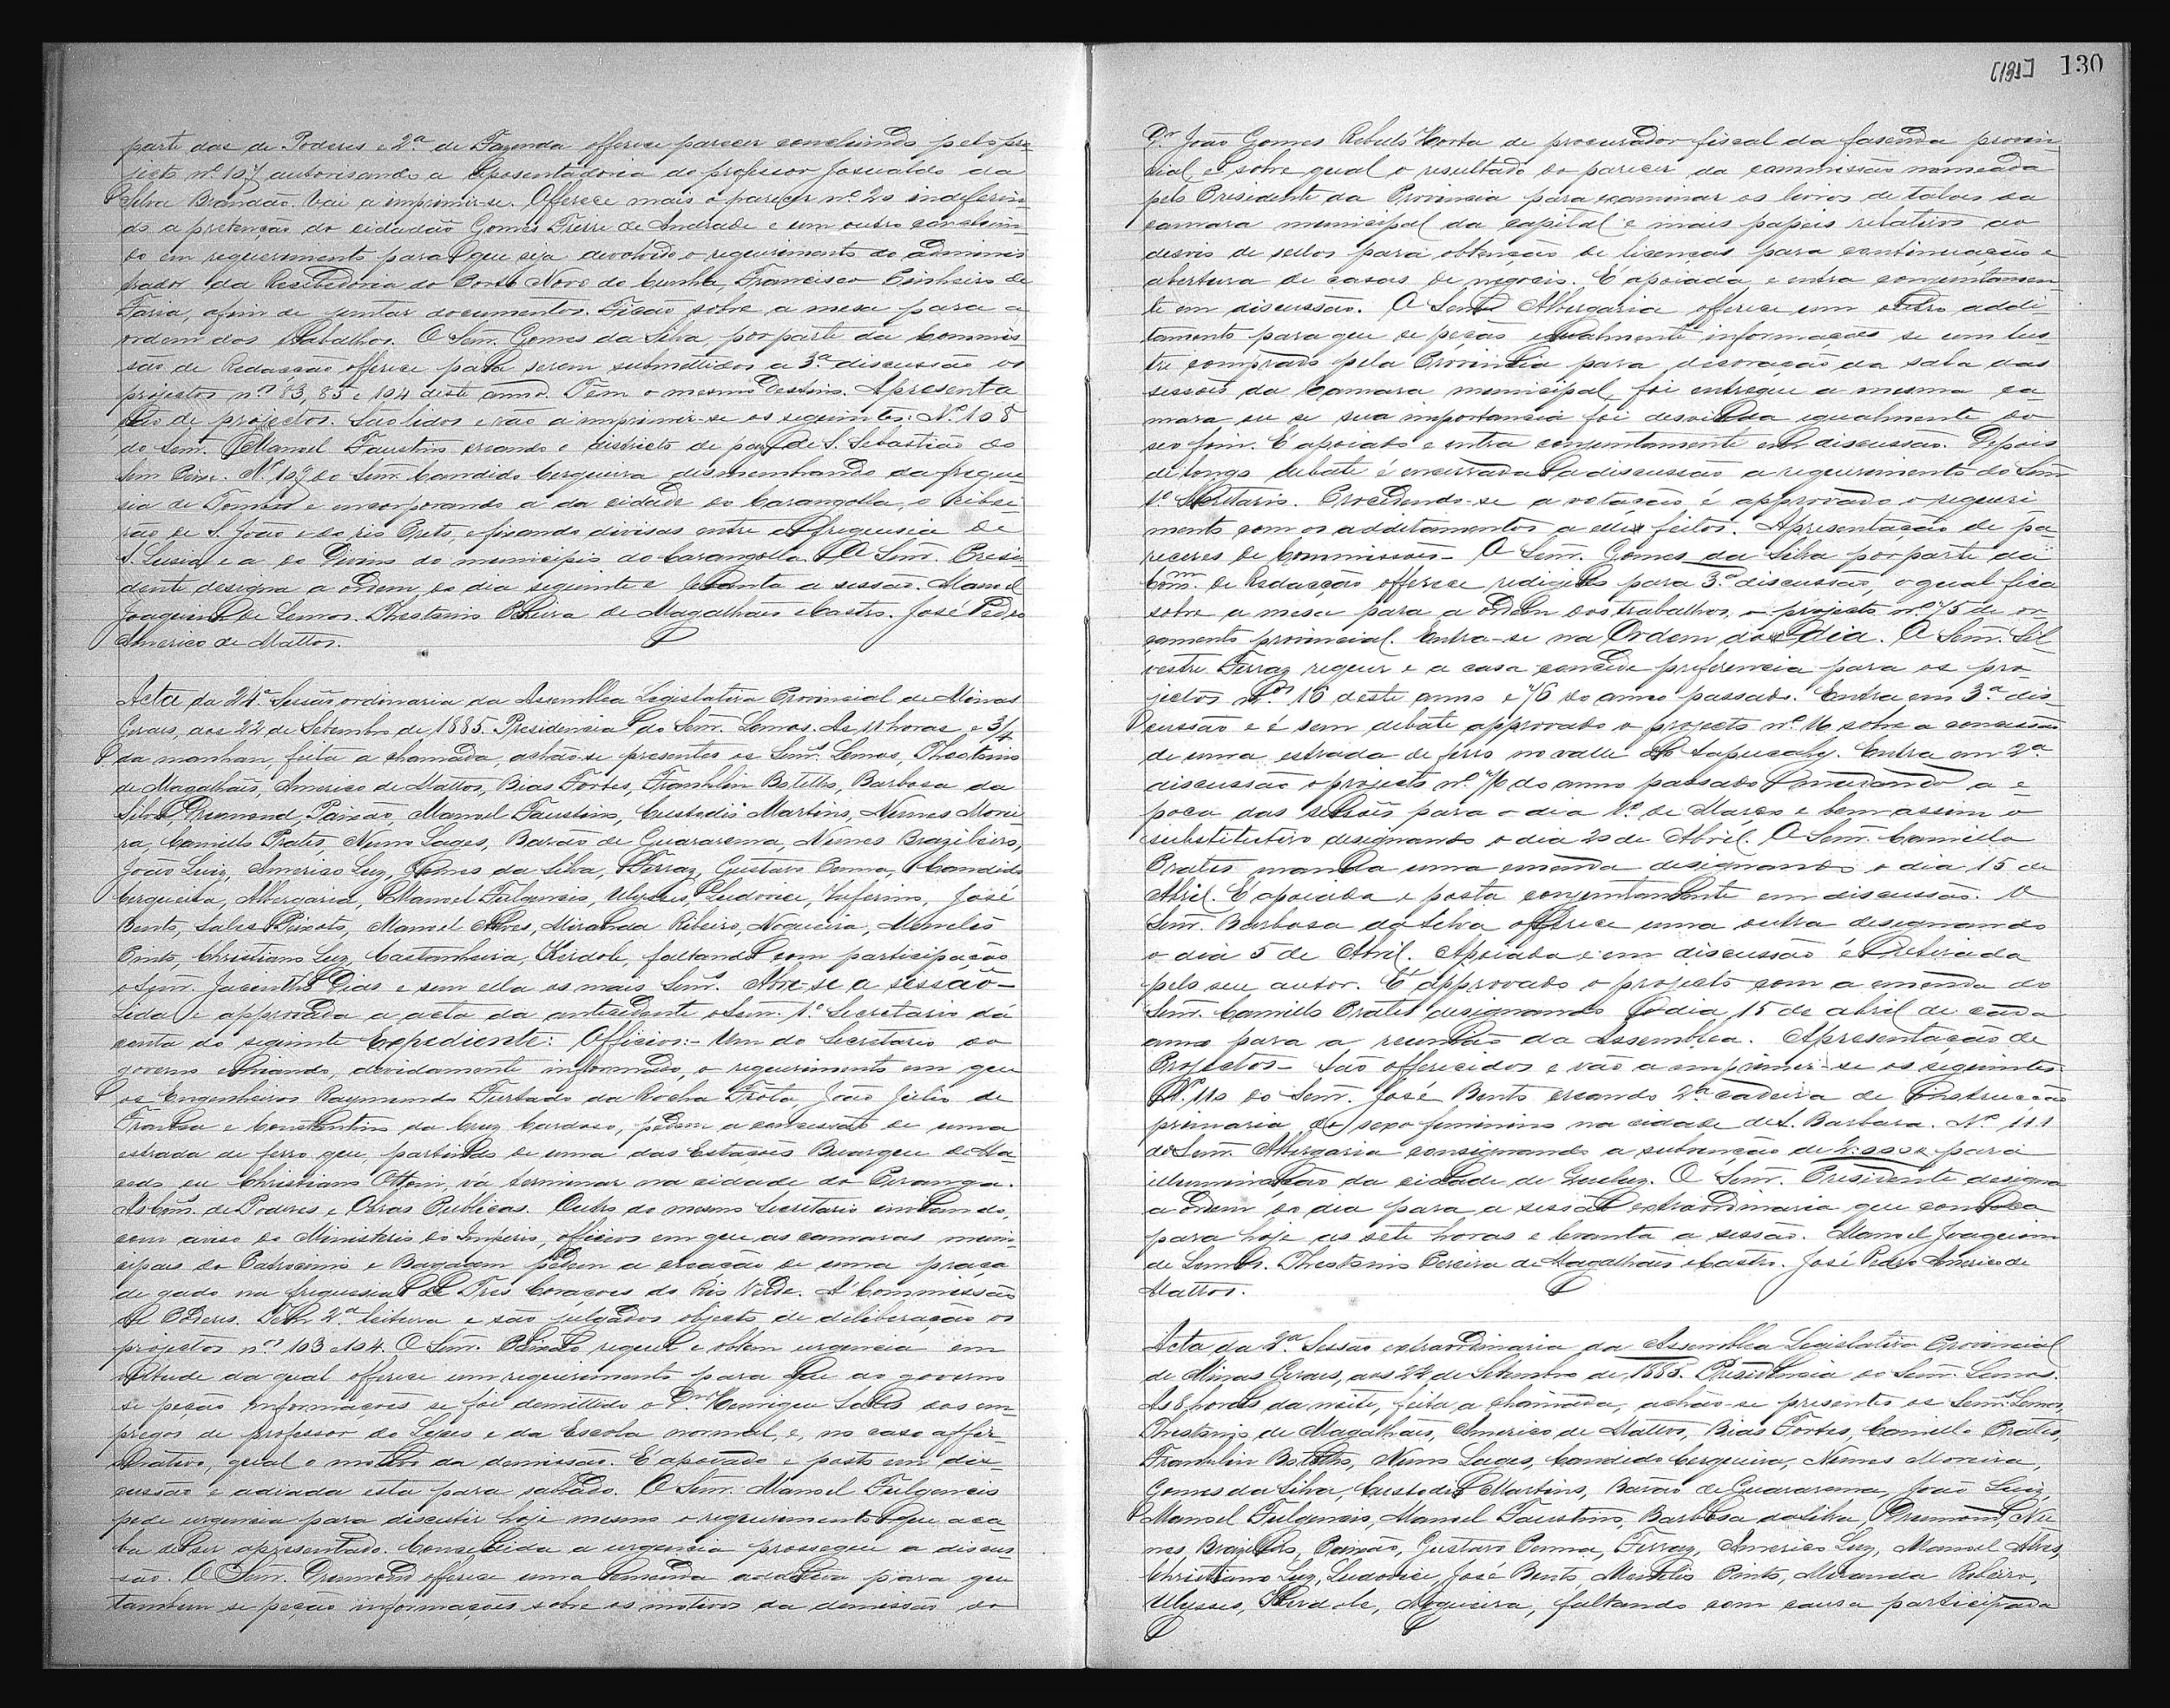 [131] 130
parte das de Poderes e 2ª de Fazenda offerece parecer concluindo pelo pro-
jecto nº 107 autorisando a aposentadoria do professor Josualdo da
Silva Brandão. Vai a imprimir-se. Offerece mais o parecer nº 20 indeferin-
do a pretenção do cidadão Gomes Freire de Andrade e um outro concluin-
do em requerimento para que seja devolvido o requerimento do adminis-
trador da Recebedoria do Porto Novo do Cunha, Francisco Pinheiro de
Faria, afim de juntar documentos. Ficão sobre a mesa para a
ordem dos trabalhos. O Senr. Gomes da Silva, por parte da Commis-
são de Redacção offerece para serem submettidos a 3ª discussão os
projectos nos 83, 85 e 104 deste anno. Têm o mesmo destino. Apresenta-
ção de projectos. São lidos e vão a imprimir-se os seguintes: Nº 108
do Senr. Manoel Faustino creando o districto de paz de S. Sebastião do
Sem Peixe. Nº 109 do Senr. Candido Cerqueira desmembrando da fregue-
sia de Tombos e encorporando a da cidade do Carangolla, o Ribei-
rão de S. João e do rio Preto, e fixando divisas entre a freguesia de
S. Lusia e a do Divino do municipio do Carangolla. O Senr. Presi-
dente designa a ordem do dia seguinte e levanta a sessão. Manoel
Joaquim de Lemos. Theotonio Pereira de Magalhães e Castro. José Pedro
Americo de Mattos.
Acta da 24ª Sessão ordinaria da Assemblea Legislativa Provincial de Minas
Geraes, aos 22 de Setembro de 1885. Presidencia do Senr. Lemos. As 11 horas e 3/4
da manhan, feita a chamada, achão-se presentes os Senrs. Lemos, Theotonio
de Magalhães, Americo de Mattos, Bias Fortes, Franklin Botelho, Barbosa da
Silva, Drumond, Paixão, Manoel Faustino, Custodio Martins, Nunes Morei-
ra, Camillo Prates, Nuno Lages, Barão de Guararema, Nunes Brazileiro,
João Luiz, Americo Luz, Gomes da Silva, Ferraz, Gustavo Penna, Candido
Cerqueira, Albergaria, Manoel Fulgencio, Ulysses, Ludovice, Zeferino, José
Bento, Sales Peixoto, Manoel Alves, Miranda Ribeiro, Nogueira, Menelio
Pinto, Christiano Luz, Castanheira, Kerdole, faltando com participação
o Senr. Jacintho Dias e sem ella os mais Senrs. Abre-se a sessão-
Lida e approvada a acta da antecedente o Senr. 1º Secretario dá
conta do seguinte Expediente: Officios:- Um do Secretario do
governo enviando, devidamente informado, o requerimento em que
os Engenheiros Raymundo Furtado da Rocha Frota, João Julio de
e Constantino da Cruz Cardoso, pedem a concessão de uma
estrada de ferro que, partindo de uma das Estações Buarque de Ma-
cedo ou Christiano Ottoni, vá terminar na cidade do Piranga.
Ás Coms. de Poderes e Obras Publicas. Outro do mesmo Secretario enviando,
com aviso do Ministerio do Imperio, officios em que as camaras muni-
cipaes do Patrocinio e Bagagem pedem a creação de uma praça
de gado na freguesia de Tres Corações do Rio Verde. Á Commissão
de Poderes. Têm 2ª leitura e são julgados objecto de deliberação os
projectos nos 103 e 104. O Senr. Paixão requer e obtem urgencia em
virtude da qual offerece um requerimento para que ao governo
se peção informações se foi demittido o Dr. Henrique Sales dos em-
pregos de professor do Lyceo e da Escola normal, e, no caso affir-
mativo, qual o motivo da demissão. É apoiado e posto em dis-
cussão é adiada esta para sabbado. O Senr. Manoel Fulgencio
pede urgencia para discutir hoje mesmo o requerimento que aca-
ba de ser apresentado. Concedida a urgencia prossegue a discus-
são. O Senr. Drumond offerece uma emenda additiva para que
tambem se peção informações sobre os motivos da demissão do
Dr. João Gomes Rebello Horta de procurador fiscal da fasenda provin-
cial, e sobre qual o resultado do parecer da commissão nomeada
pelo Presidente da Provincia para examinar os livros de talões da
camara municipal da capital e mais papeis relativos ao
desvio de sellos para obtenção de licenças para continuação e
abertura de casas de negocio. É apoiada e entra conjuntamen-
te em discussão. O Senr. Albergaria offerece um outro addi-
tamento para que se peção igualmente informações se um lus-
tre comprado pela Provincia para decoração da sala das
sessões da camara municipal, foi entregue a mesma ca-
mara ou se sua importancia foi desviada igualmente do
seo fim. É apoiado e entra conjuntamente em discussão. Depois
de longo debate é encerrada a discussão a requerimento do Senr.
1º Secretario. Procedendo-se a votação é approvado o requeri-
mento com os additamentos a elle feitos. Apresentação de pa-
receres de Commissões- O Senr. Gomes da Silva por parte da
Comm. de Redacção offerece redigido para 3ª discussão, o qual fica
sobre a mesa para a ordem dos trabalhos, o projecto nº 75 de or-
çamento provincial. Entra-se na Ordem do Dia. O Senr. Sil-
vestre Ferraz requer e a casa concede preferencia para os pro-
jectos nos 16 deste anno e 76 do anno passado. Entra em 3ª dis-
cussão e é sem debate approvado o projecto nº 16 sobre a concessão
de uma estrada de ferro no valle do Sapucahy. Entra em 2ª
discussão o projecto nº 76 do anno passado marcando a e-
poca das sessões para o dia 1º de Março e bem assim o
substitutivo designando o dia 20 de Abril. O Senr. Camillo
Prates manda uma emenda designando o dia 15 de
Abril. É apoiada e posta conjuntamente em discussão. O
Senr. Barbosa da Silva offerece uma outra designando
o dia 5 de Abril. Apoiada e em discussão é retirada
pelo seu autor. É approvado o projecto com a emenda do
Senr. Camillo Prates designando o dia 15 de abril de cada
anno para a reunião da Assemblea. Apresentação de
Projectos- São offerecidos e vão a imprimir-se os seguintes
Nº 110 do Senr. José Bento creando 2ª cadeira de Instrucção
primaria do sexo feminino na cidade de S. Barbara. Nº 111
do Senr. Albergaria consignando a subvenção de 2:000$ para
illuminação da cidade de Queluz. O Senr. Presidente designa
a ordem do dia para a sessão extraordinaria que convoca
para hoje as sete horas e levanta a sessão. Manoel Joaquim
de Lemos. Theotonio Pereira de Magalhães e Castro. José Pedro Americo de
Mattos.
Acta da 2ª Sessão extraordinaria da Assemblea Legislativa Provincial
de Minas Geraes, aos 22 de Setembro de 1885. Presidencia do Senr. Lemos.
As 8 horas da noite, feita a chamada, achão-se presentes os Senrs. Lemos,
Theotonio de Magalhães, Americo de Mattos, Bias Fortes, Camillo Prates,
Franklin Botelho, Nuno Lages, Candido Cerqueira, Nunes Moreira,
Gomes da Silva, Custodio Martins, Barão de Guararema, João Luiz,
Manoel Fulgencio, Manoel Faustino, Barbosa da Silva, Drumond, Nu-
nes Brazileiro, Paixão, Gustavo Penna, Ferraz, Americo Luz, Manoel Alves,
Christiano Luz, Ludovice, José Bento, Menelio Pinto, Miranda Ribeiro,
Ulysses, Kerdole, Nogueira, faltando com causa participada